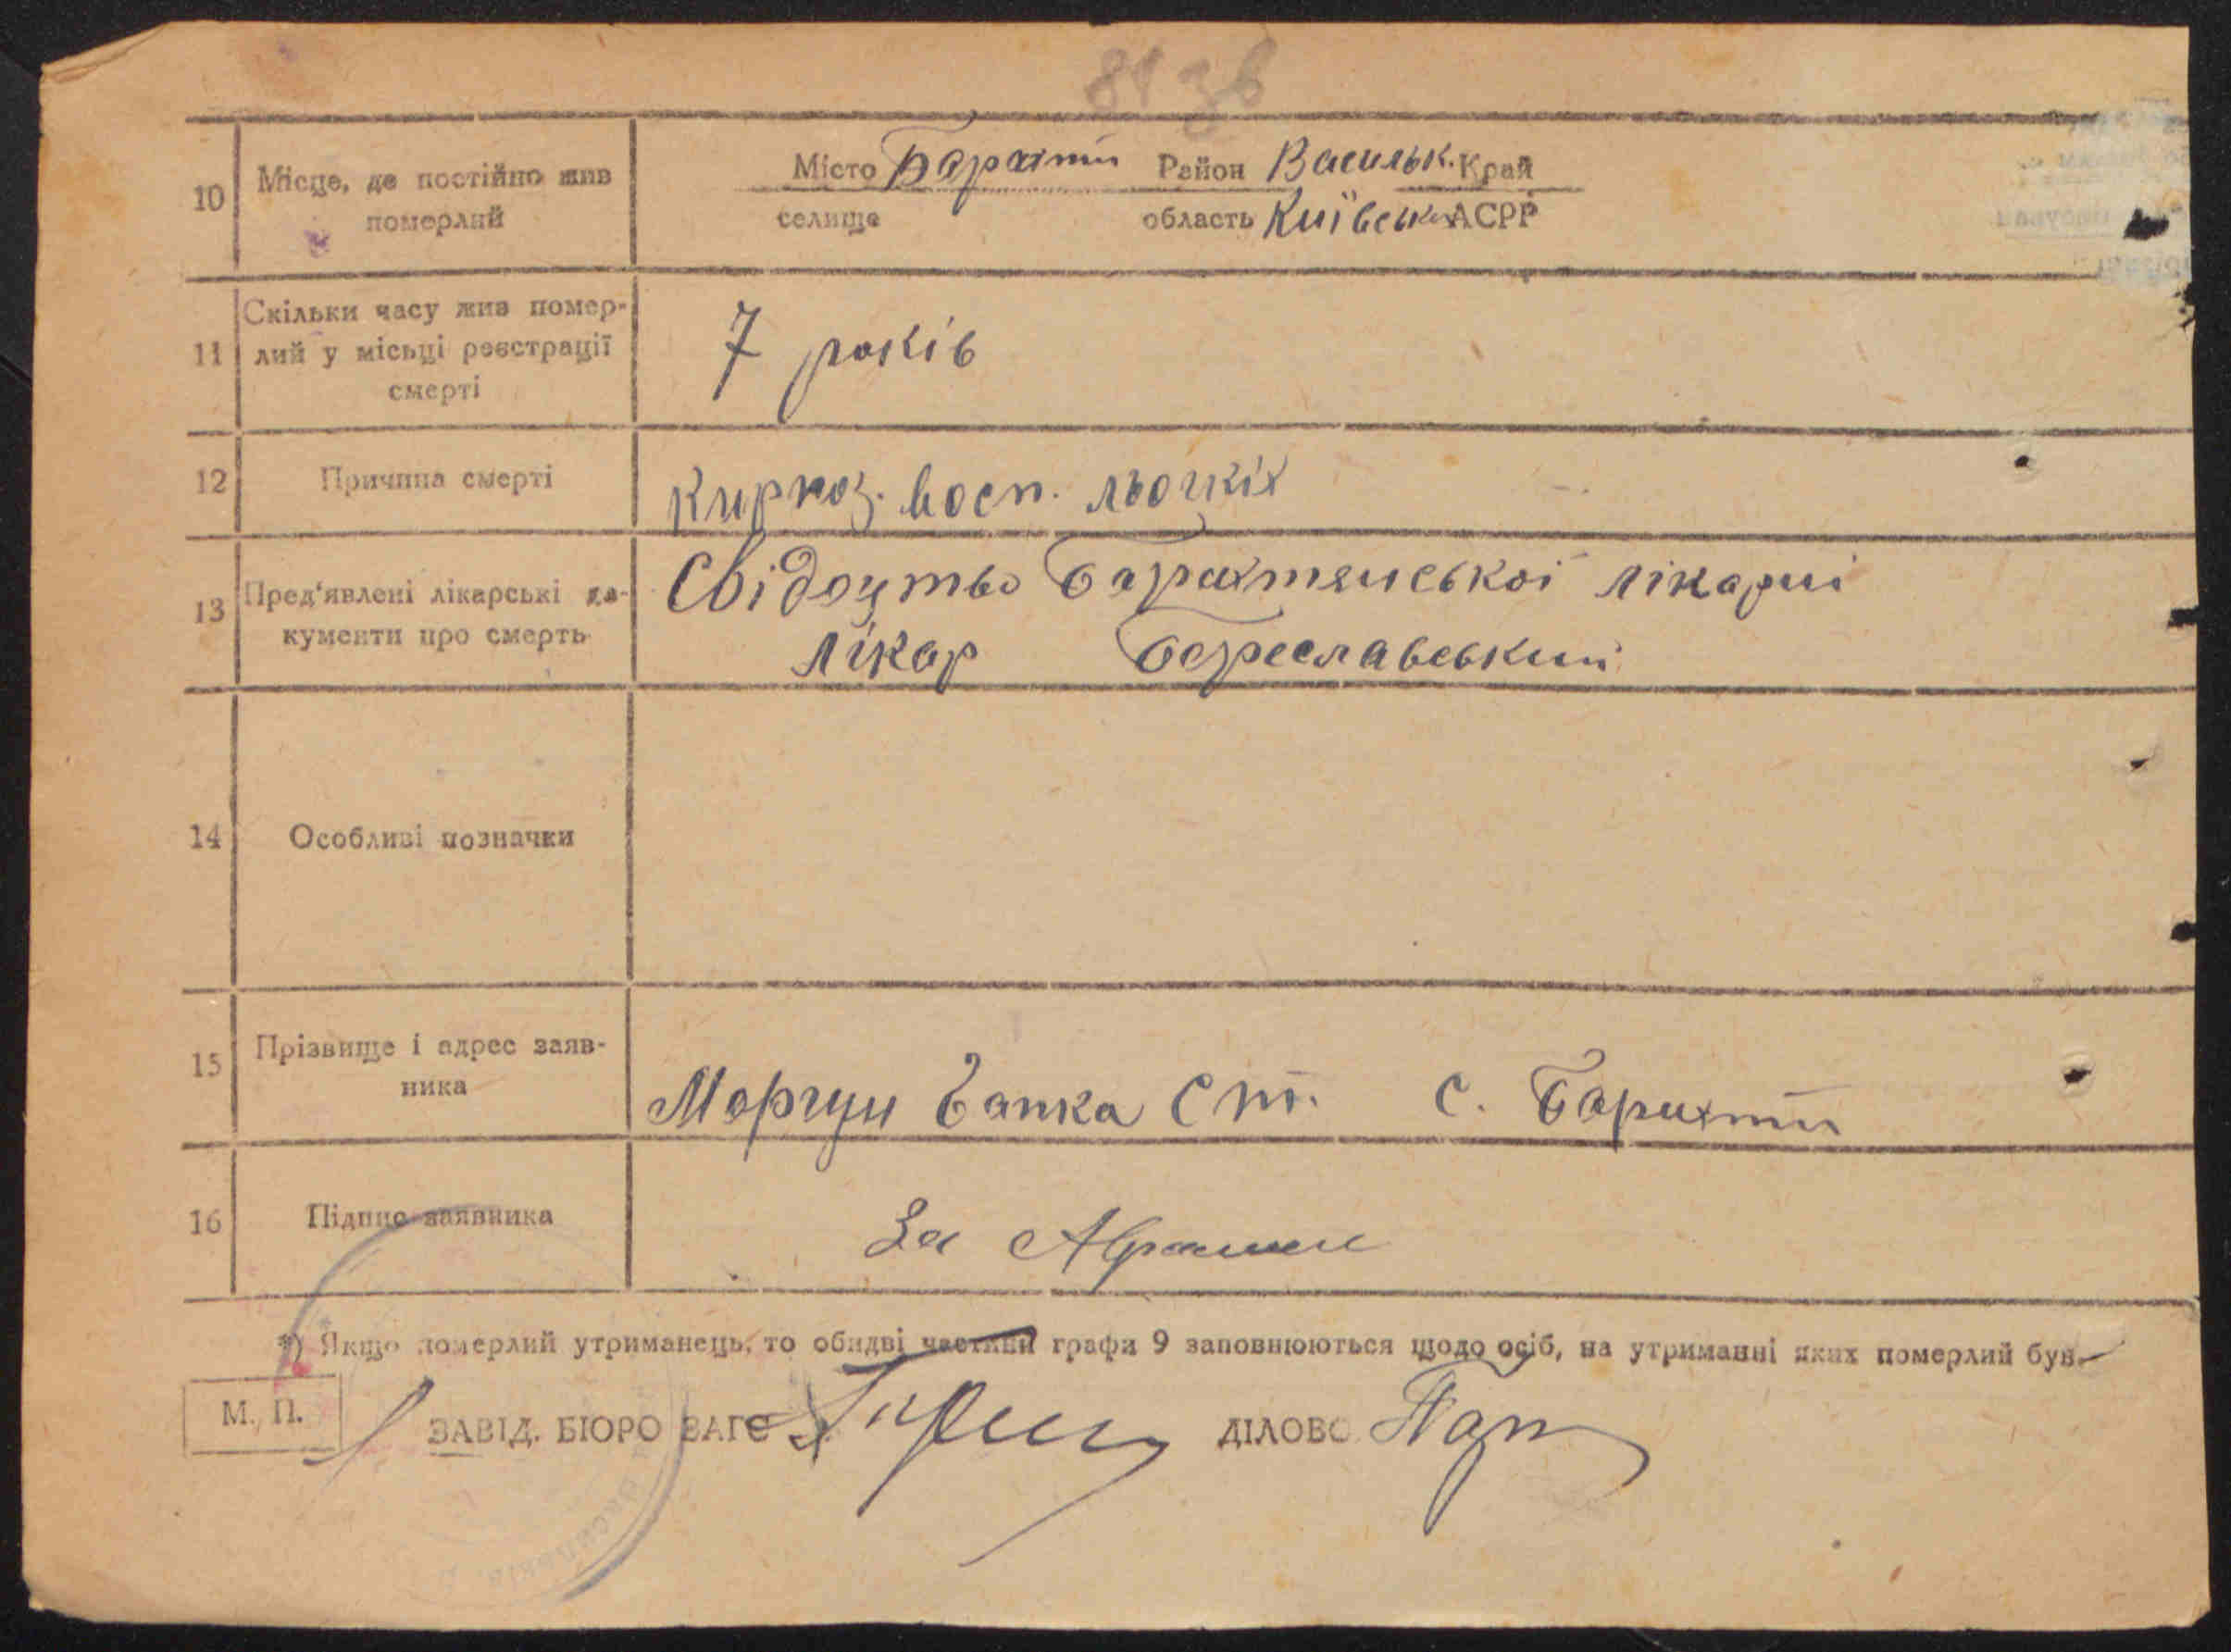 81 зв
10
Місце, де постійно жив
померлий
Місто Барахти Район Васильк. Край
селище область Київська АСРР
11
Скільки часу жив помер-
лий у місьці реєстрації
смерті
7 років
12
Причина смерті
восп. льогкіх
13
Пред'явлені лікарські до-
кументи про смерть
Свідоцтво Барахтянської лікарні
лікар Береславський
14
Особливі позначки
15
Прізвище і адрес заяв-
ника
Моргун с. Барахти
16
Підпис заявника
За
*) Якщо померлий утриманець, то обидві частини графи 9 заповнюються щодо осіб, на утриманні яких померлий був.
М. П.
ЗАВІД. БЮРО ЗАГС
ДІЛОВО